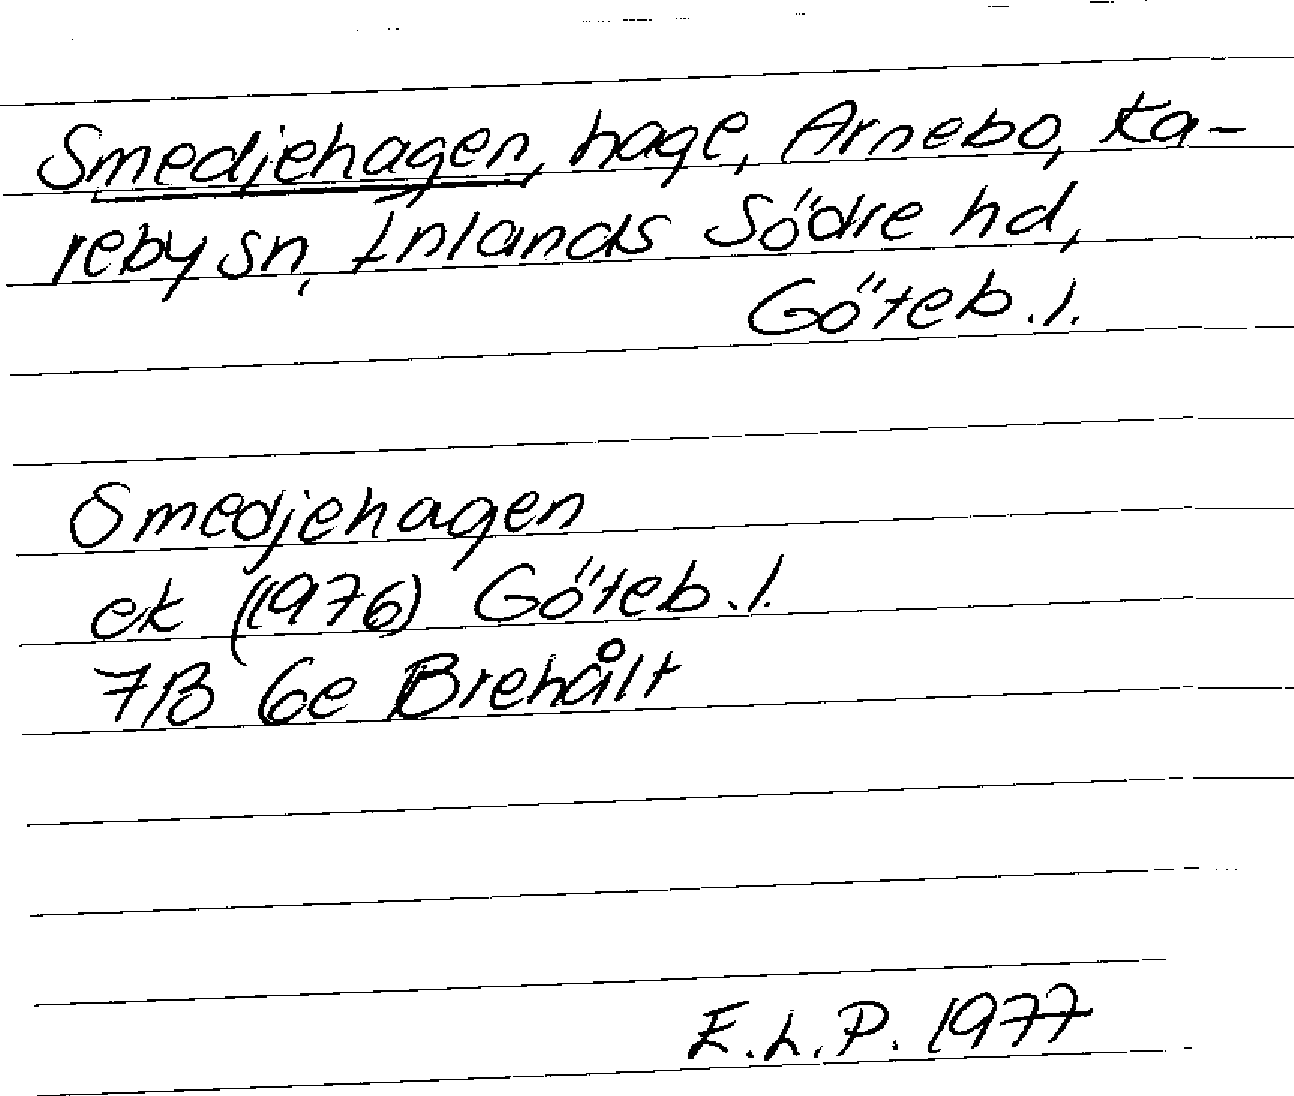 Smedjehagen, hage, Arnebo, Ka-
reby sn, Inlands Södre hd,
Göteb. l.
Smedjehagen
ek (1976) Göteb. l.
7B 6e Brehålt
E.L.P. 1977